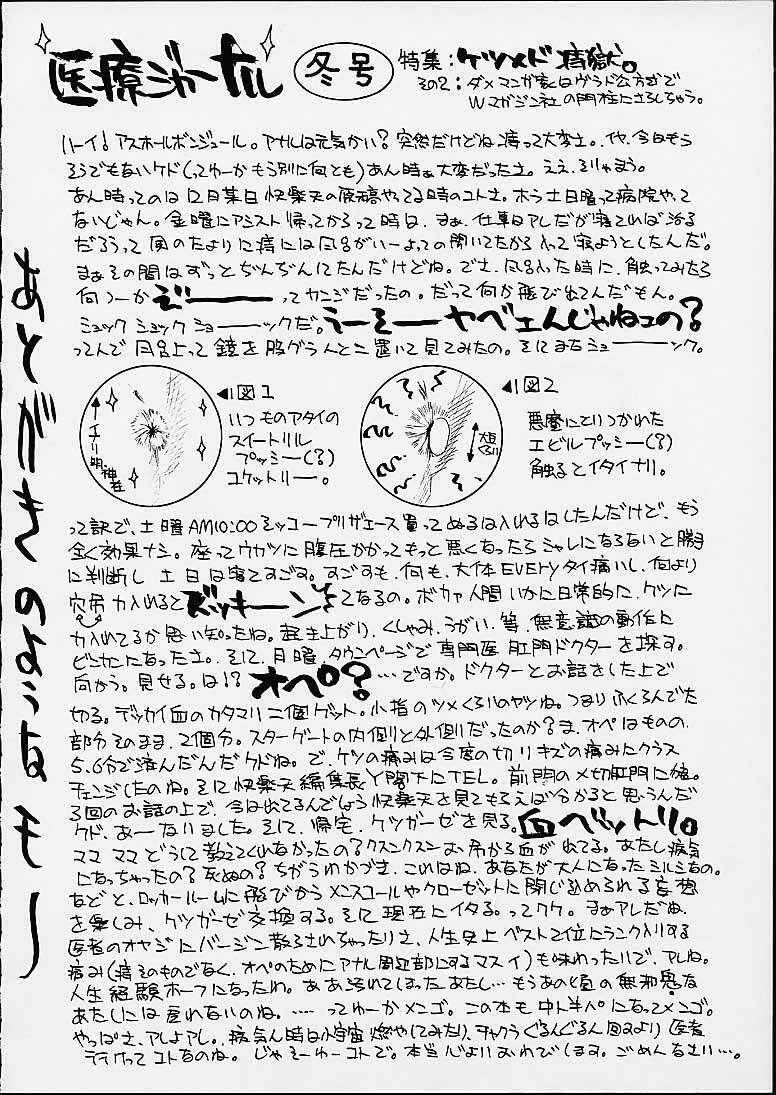 医療ジャーナル 冬号
特集：ケツメド痔獄。
その2：ダメマンガ家はヴラド公方式で
Wマガジン社の門柱にさらしちゃう。
あとがきのようなモノ
ハーイ！アスホールボンジュール。アナルは元気かい？突然だけどね痔って大変さ。イヤ、今日もう
そうでもないケド（ってゆーかもう別に何とも）あん時ぁ大変だったさ。ええ、そりゃもう。
あん時ってのは12月某日快楽天の原稿やってる時のコトさ。ホラ土日曜って病院やって
ないじゃん。金曜にアシスト帰ってからって時は、まぁ、仕事はアレだが寝てれば治る
だろうって風のたよりに痔には風呂がいーよっての聞いてたから入って寝ようとしたんだ。
まぁその間はずっとぢんぢんしてたんだけどね。でさ、風呂入った時に、触ってみたら
何つーかぞーーってカンジだったの。だって何か飛び出てんだもん。
ショック ショック ショーーックだ。うーそーヤベェんじゃねェの？
ってんで風呂上って鏡を股グラんとこ置いて見てみたの。そしてまたショーーック。
◀図1
いつものアタイの
スイートリル
プッシー（？）
ユケットリー。
◀図2
大豆くらい
悪魔にとりつかれた
エビルプッシー（？）
触るとイタイナリ。
って訳で、土曜AM10:00ソッコープリザエース買ってぬるは入れるはしたんだけど、もう
全く効果ナシ。座ってウカツに腹圧かかってもっと悪くなったらシャレにならないと勝手
に判断し 土日は寝てすごす。すごすも、何も、大体EVERYタイ痛いし、何より
穴吊力入れるとズッキーンとなるの。ボカァ人間いかに日常的に、ケツに
力入れてるか思い知ったね。起き上がり、くしゃみ、うがい、等、無意識の動作に
ビンカンになったさ。そして、月曜、タウンページで専門医肛門ドクターを探す。
向かう。見せる。は！？オペ？…ですか。ドクターとお話をした上で
切る。デッカイ血のカタマリ二個ゲット。小指のツメくらいのヤツね。つまりふくらんでた
部分そのまま、2個分。スターゲートの内側と外側だったのか？ま、オペはものの
5、6分で済んだんだケドね。で、ケツの痛みは今度の切りキズの痛みにクラス
チェンジしたのね。そして快楽天編集長Y閣下にTEL。前門の〆切肛門に痔。
3回のお話の上で、今は出てるんでしょう快楽天を見てもらえば分かると思うんだ
ケド、あーなりました。そして、帰宅、ケツガーゼを見る。血ベットリ。
ママ ママ どうして教えてくれなかったの？クスンクスンお吊から血が出てる。あたし病気
になっちゃったの？死ぬの？ちがうわかづき、これはね、あなたが大人になったシルシなの。
などと、ロッカールームに飛びかうメンスコールやクローゼットに閉じ込められる妄想
を楽しみ、ケツガーゼ交換する。そして現在にイタる。ってワケ。まぁアレだね、
医者のオヤジにバージン散らされちゃったりさ、人生史上ベスト2位にランク入りする
痛み（痔そのものでなく、オペのためにアナル周辺部にするマスイ）も味わったしで、アレね。
人生経験ホーフになったわ。ああ汚れてしまったあたし…もうあの頃の無邪鬼な
あたしには戻れないのね。……ってゆーかメンゴ。この本も中ト半パになってメンゴ。
やっぱさ、アレよアレ。病気ん時は小宇宙燃やしてみたり、チャクラぐるんぐるん回すより医者
行けってコトなのね。じゃそーゆーコトで。本当心よりおわびします。ごめんなさい…。